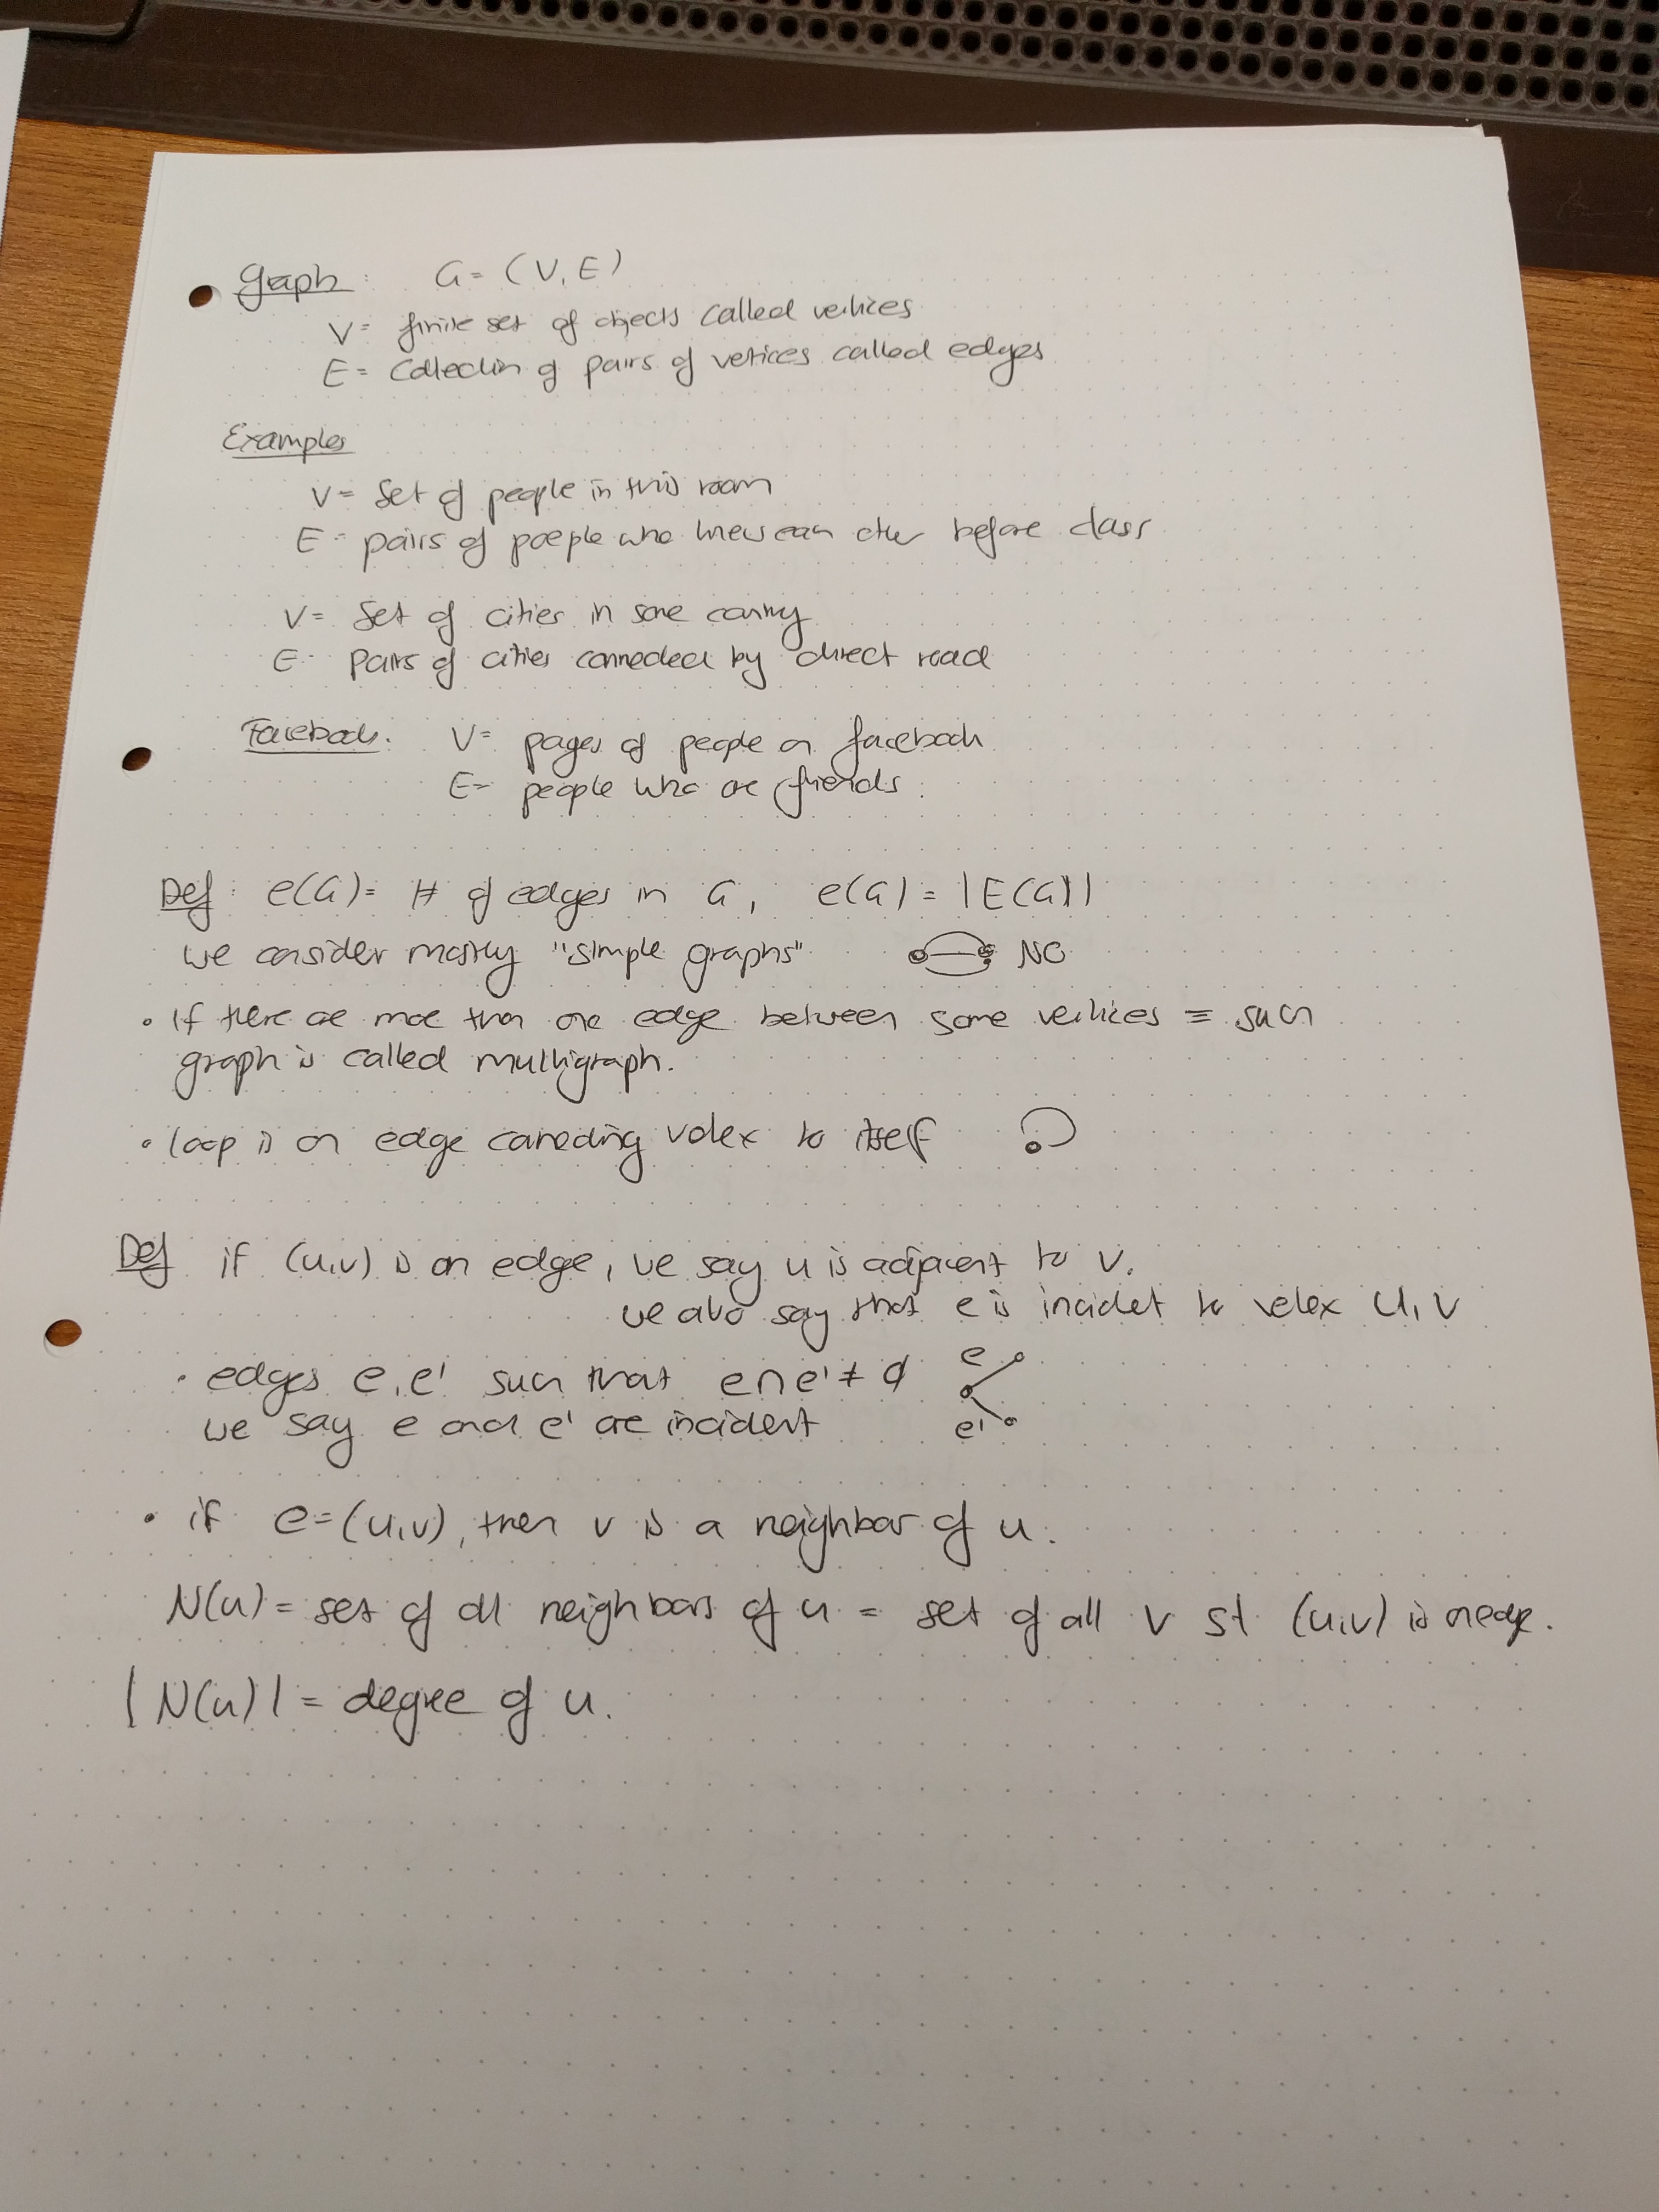 Graph: G = (V, E)
V = finite set of objects called vertices
E = collection of pairs of vetices called edges
Examples
V = set of people in this room
E = pairs of poeple who knew each other before class
V = set of cities in some country
E = pairs of cities connected by direct road
Facebook: V = pages of people on facebook
E = people who are friends.
Def: e(G) = # of edges in G, e(G) = |E(G)|
we consider mostly "simple graphs" NO
• If there are more than one edge between some vertices = such
graph is called multigraph.
• loop is an edge connecting vertex to itself
Def if (u,v) is an edge, we say u is adjacent to v.
we also say that e is incident to vertex u, v
• edges e, e' such that e ∩ e' ≠ ∅ e
we say e and e' are incident e'
• if e = (u,v), then v is a neighbor of u.
N(u) = set of all neighbors of u = set of all v st (u,v) is an edge.
|N(u)| = degree of u.